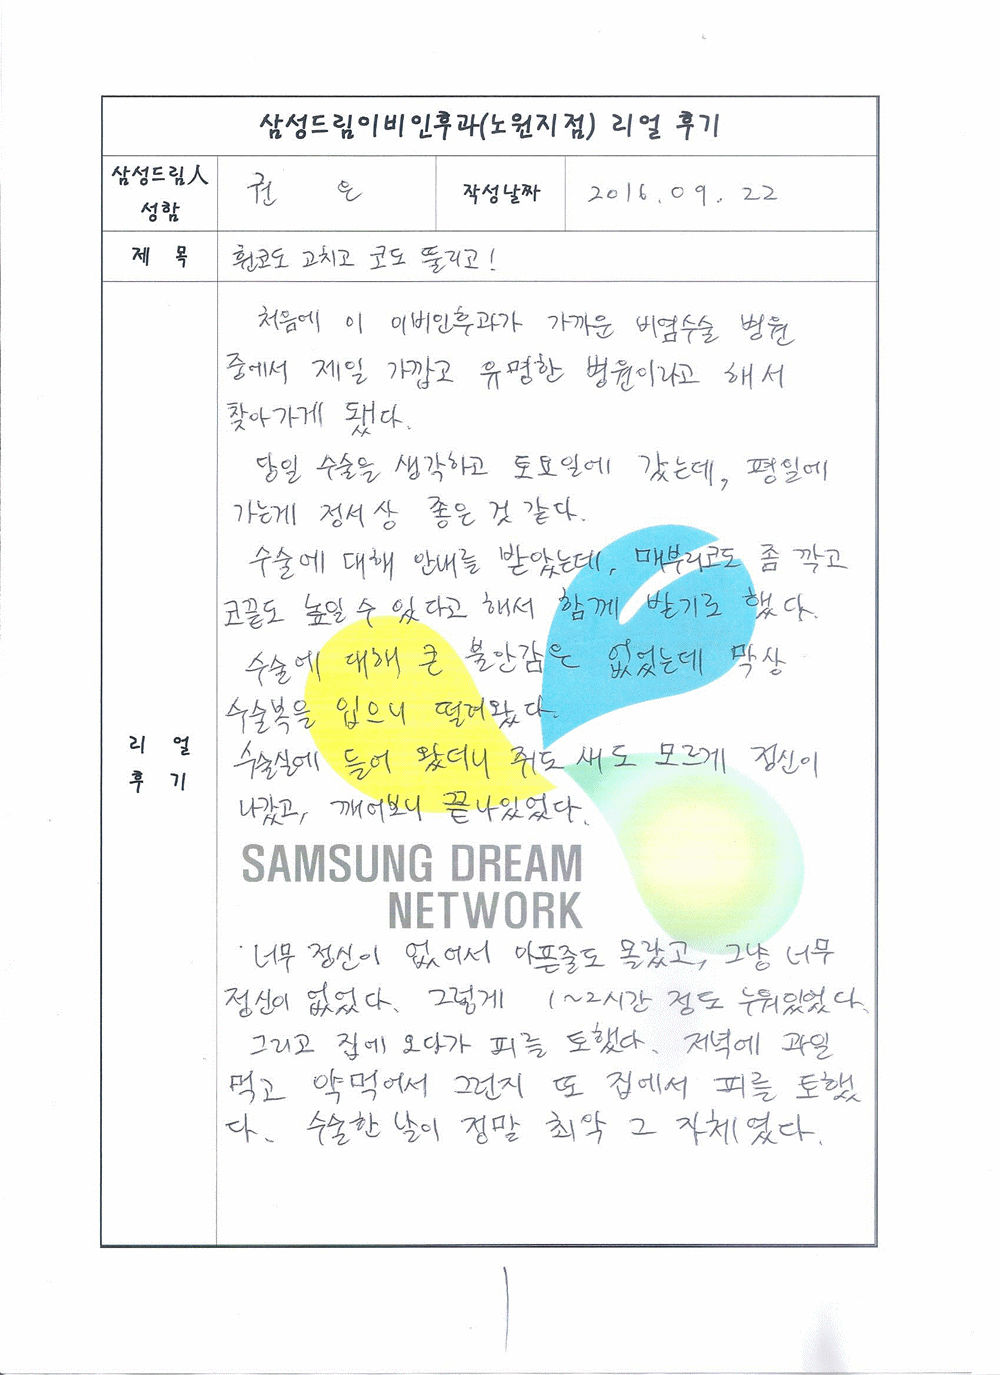 삼성드림이비인후과(노원지점) 리얼 후기
삼성드림人
성함
권 은
작성날짜
2016.09.22
제 목
휜코도 고치고 코도 뚫리고!
처음에 이 이비인후과가 가까운 비염수술 병원
중에서 제일 가깝고 유명한 병원이라고 해서
찾아가게 됐다.
당일 수술을 생각하고 토요일에 갔는데, 평일에
가는게 정서상 좋은 것 같다.
수술에 대해 안내를 받았는데, 매부리코도 좀 깍고
코끝도 높일 수 있다고 해서 함께 받기로 했다.
수술에 대해 큰 불안감은 없었는데 막상
수술복을 입으니 떨려왔다.
수술실에 들어 왔더니 쥐도 새도 모르게 정신이
나갔고, 깨어보니 끝나있었다.
리 얼
후 기
SAMSUNG DREAM
NETWORK
너무 정신이 없어서 아픈줄도 몰랐고, 그냥 너무
정신이 없었다. 그렇게 1~2시간 정도 누워있었다.
그리고 집에 오다가 피를 토했다. 저녁에 과일
먹고 약먹어서 그런지 또 집에서 피를 토했
다. 수술한 날이 정말 최악 그 자체였다.